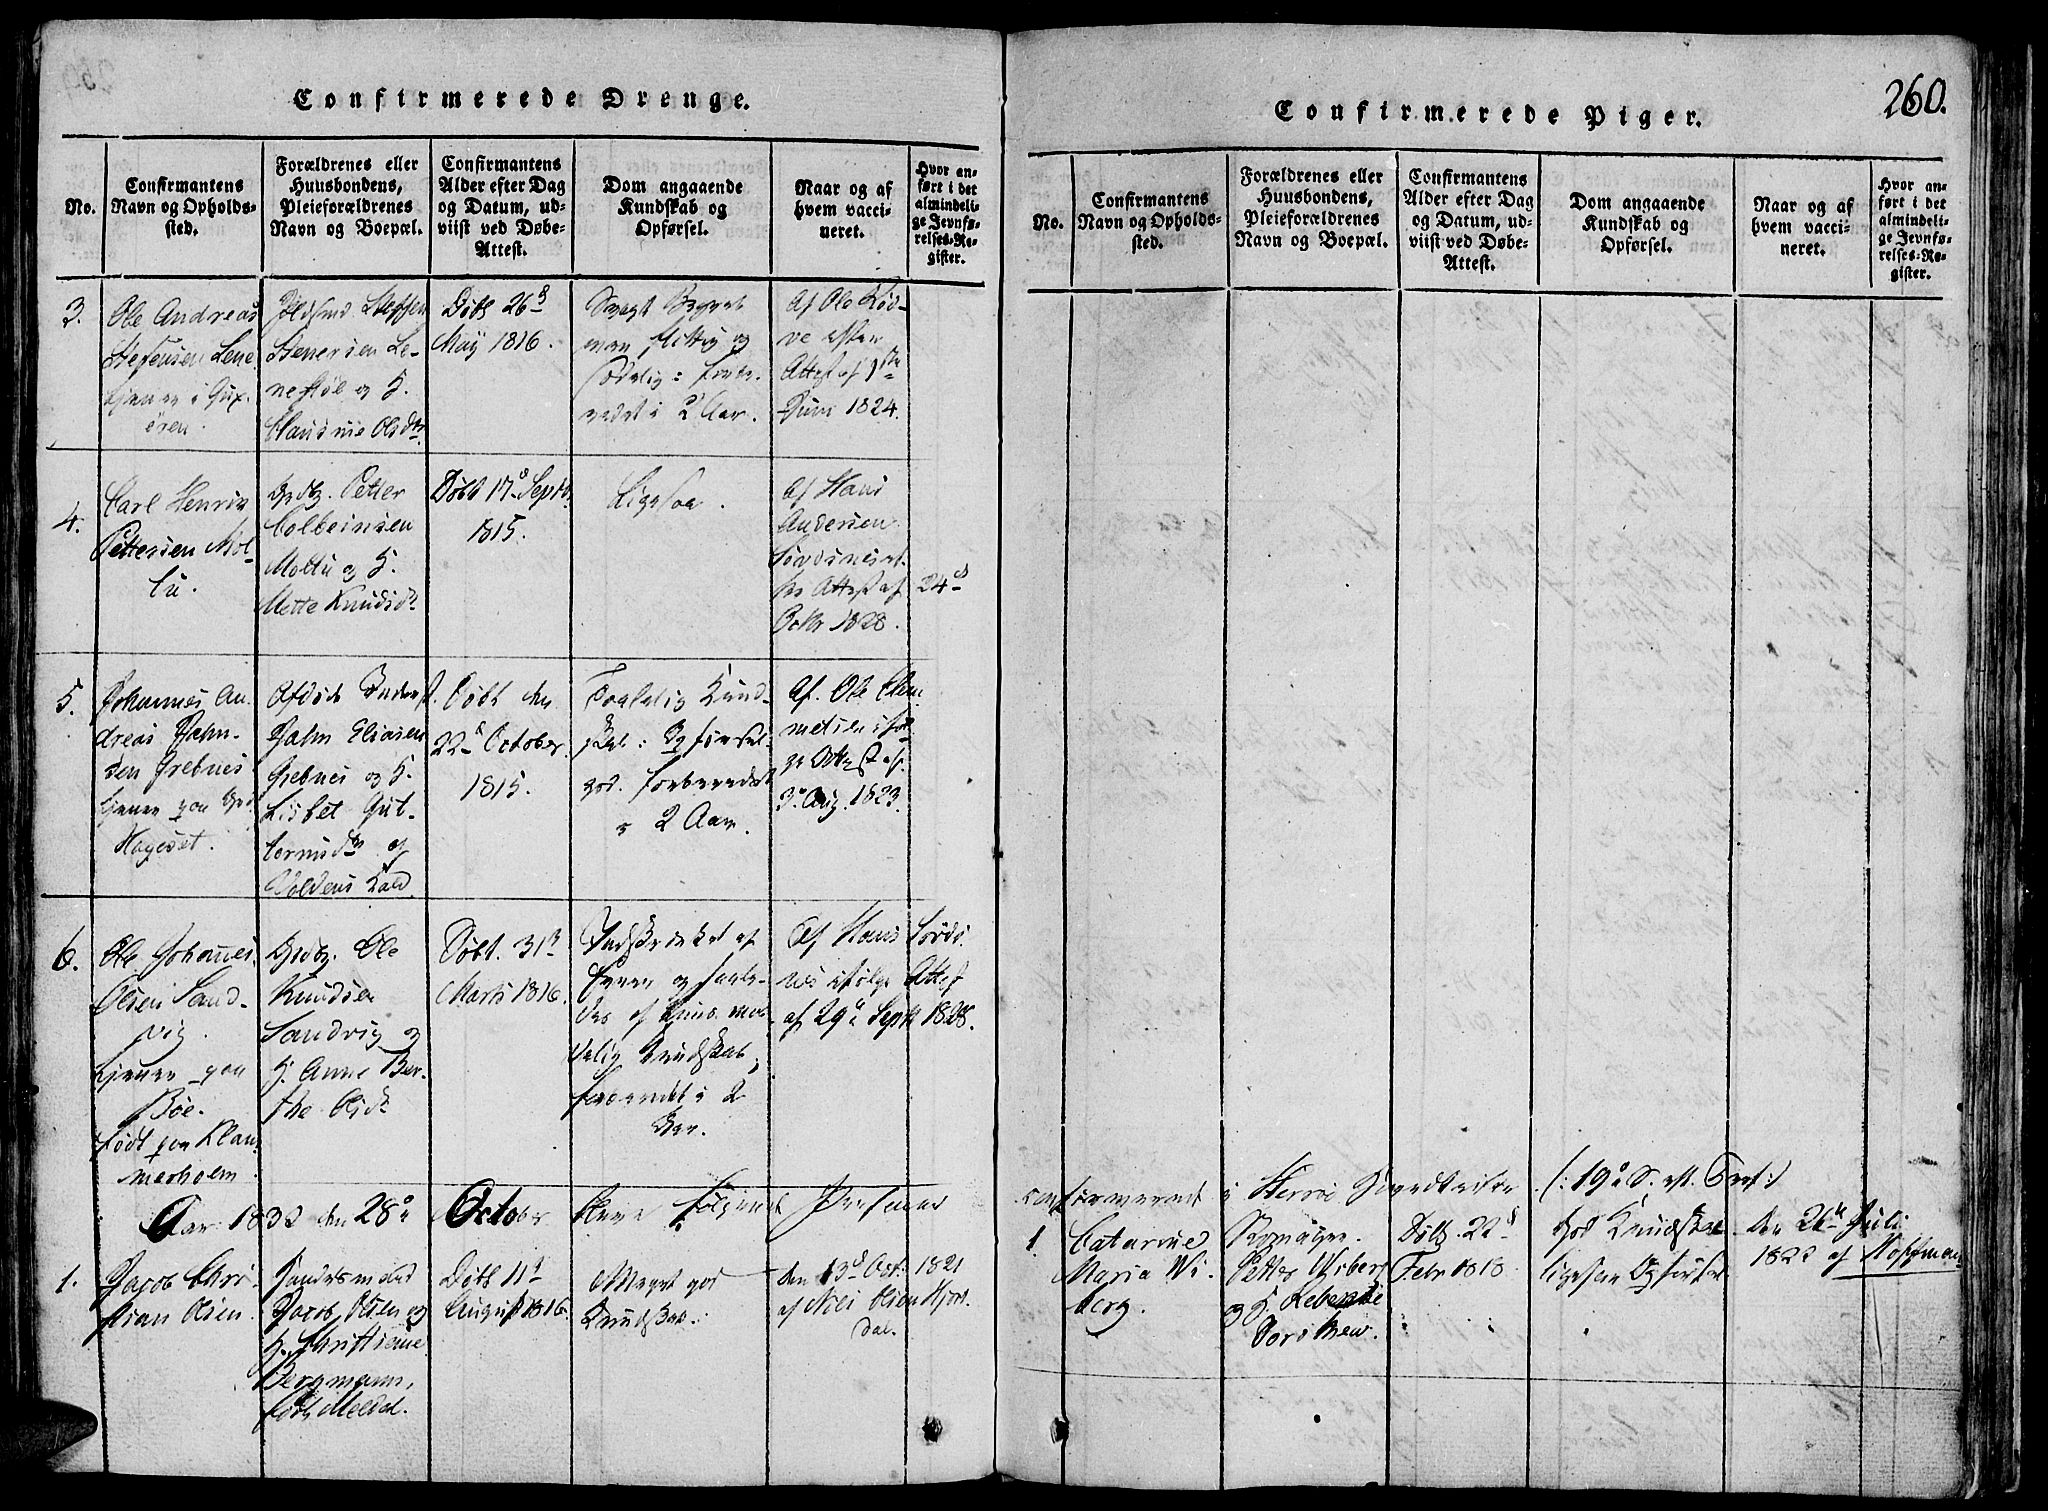 260.
Confirmerede Drenge.
No.
Confirmantens
Navn og Opholds-
sted.
Forældrenes eller
Huusbondens,
Pleieforældrenes
Navn og Boepæl.
Confirmantens
Alder efter Dag
og Datum, ud-
viist ved Døbe-
Attest.
Dom angaaende
Kundskab og
Opførsel.
Naar og af
hvem vacci-
neret.
Hvor an-
ført i det
almindeli-
ge Jevnfø-
relses-Re-
gister.
3.
Ole Andreas
Stefensen Lene
tjener i
øren.
Steffen
Stenersen Le-
nestøl og H.
Olsdtr.
Døbt 26d
May 1816.
Svagt Begreb
men flittig og
sædelig: forbe-
redet i 2 Aar.
Af Ole Rød-
ve efter
Attest af 1ste
Juni 1824.
4.
Carl Henrik
Pettersen Mol-
tu.
Gdbr. Petter
Colbeinsen
Moltu og H.
Mette Knudsdtr
Døbt 17d Septbr
1815.
Ligesaa.
Af Hans
Andersen
Attest af 24d
Octbr 1828.
5.
Johannes An-
dreas Jahn-
sen Grebnes
tjener paa
Hageset.
Afdøde
Jahn Eliasen
Grebnes og H.
Lisbet Gut-
tormsdtr af
Voldens Kald
Døbt den
22d October
1815.
Taalelig Kund-
skab: Opførsel
god. forberedet
i 2 Aar.
Af. Ole Clem-
metsen iføl-
ge Attest af
3d Aug. 1823.
6.
Ole Johannes
Olsen Sand-
vig.
tjener paa
Bøe.
født paa Klam-
merholm.
Gdbr. Ole
Knudsen
Sandvig og
H. Anne Ber-
the Olsdtr
Døbt. 31d
Marts 1816.
Indskrænket af
Evner og saale-
des af
Kundskab,
forberedet i 2
Aar.
Af Hans Sørds-
nes ifølge Attest
af 29d Septbr 1828.
Aar 1832 den 28d October bleve følgende
1.
Jacob Chri-
stian Olsen
Handelsmand
Jacob Olsen og
H. Christiane
Bergmann,
født Meldal.
Døbt 11d
August 1816.
Meget god
Kundskab.
den 13d Oct: 1821
af Nils Olsen Hjort-
dal.
Confirmerede Piger.
No.
Confirmantens
Navn og Opholds-
sted.
Forældrenes eller
Huusbondens,
Pleieforældrenes
Navn og Boepæl.
Confirmantens
Alder efter Dag
og Datum, ud-
viist ved Døbe-
Attest.
Dom angaaende
Kundskab og
Opførsel.
Naar og af
hvem vacci-
neret.
Hvor an-
ført i det
almindeli-
ge Jevnfø-
relses-Re-
gister.
confirmerede i Herrøe Hovedkirke (: 19d S. eft. Tref :)
1.
Catarine
Maria Wi-
berg.
Petter Wiberg
og H. Rebekke
Døbt 22d
Febr 1818.
God Kundskab
ligesaa Opførsel
den 26de Juli
1822 af Hoffman